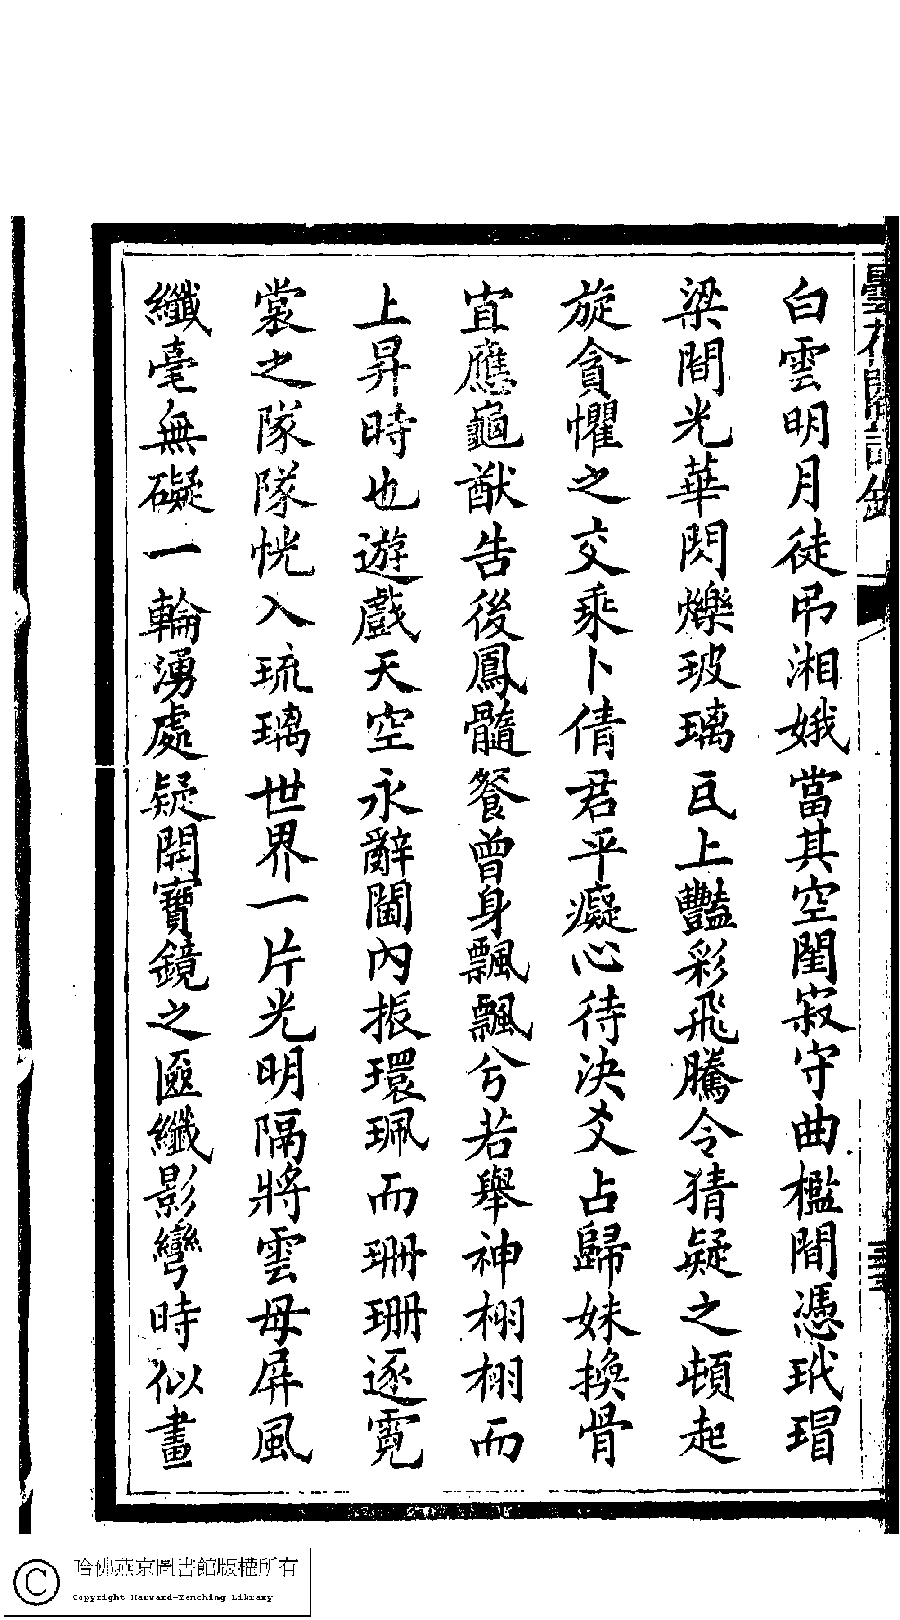 曇花閣詩鈔
白雲明月徒吊湘娥當其空閨寂守曲檻閒憑玳瑁
梁間光華閃爍玻璃瓦上豔彩飛騰令猜疑之頓起
旋貪懼之交乘卜倩君平癡心待決爻占歸妹換骨
宜應龜猷告後鳳髓餐曾身飄飄兮若舉神栩栩而
上昇時也遊戲天空永辭閫內振環珮而珊珊逐霓
裳之隊隊恍入琉璃世界一片光明隔將雲母屏風
纖毫無礙一輪湧處疑開寶鏡之匳纖影彎時似畫
哈佛燕京圖書館版權所有
Copyright Harvard-Yenching Library